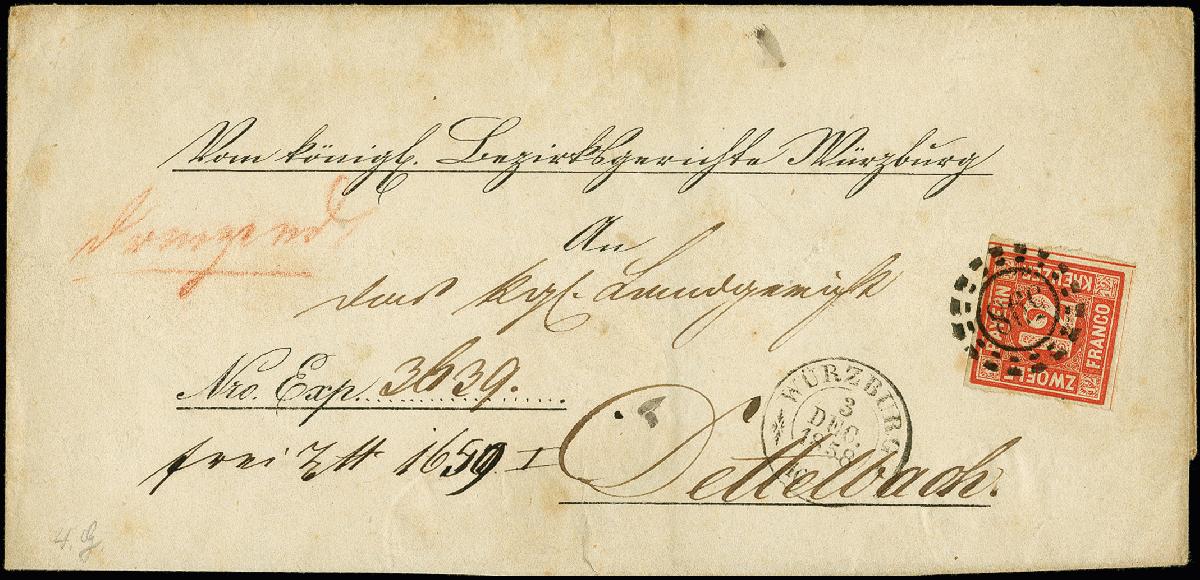 Vom königl. Bezirksgerichte Würzburg
An
das kgl. Landgericht
Nro. Exp. 3639.
frei 1659 I
Dettelbach.
WÜRZBURG
3
DEC.
1858
BAYERN
KREUZER
FRANCO
ZWÖLF
12